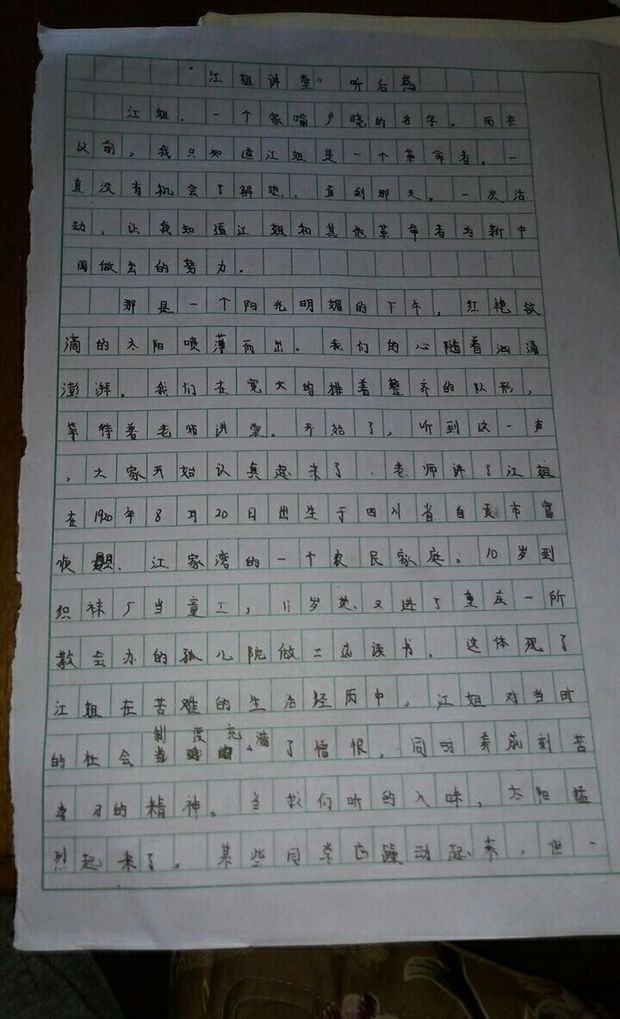 “江姐讲堂”听后感
江姐，一个家喻户晓的名字。而在
以前，我只知道江姐是一个革命者，一
直没有机会了解她。直到那天，一次活
动，让我知道江姐和其他革命者为新中
国做出的努力。
那是一个阳光明媚的下午，红艳欲
滴的太阳喷薄而出。我们的心随着汹涌
澎湃。我们在宽大的排着整齐的队形，
等待着老师讲堂。开始了，听到这一声
，大家开始认真起来了。老师讲了江姐
在1920年8月20日出生于四川省自贡市富
顺县，江家湾的一个农民家庭。10岁到
织袜厂当童工，11岁处又进了重庆一所
教会办的孤儿院做工边读书。这体现了
江姐在苦难的生活经历中，江姐对当时
的社会制度充满了憎恨，同时养成刻苦
学习的精神。当我们听的入味，太阳猛
烈起来了，某些同学也躁动起来，但一